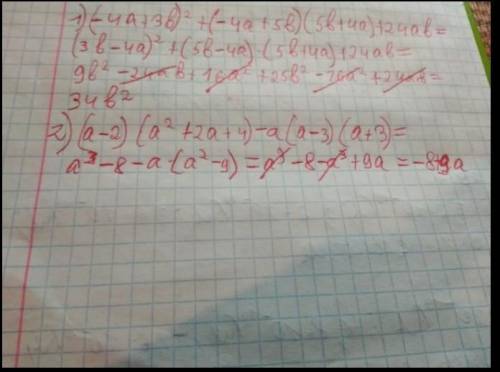 1) (-4a+3b)²+(-4a+5b)(5b+4a)+24ab=
(3b-4a)²+(5b-4a)·(5b+4a)+24ab=
9b²-24ab+16a²+25b²-16a²+24ab=
34b²
2) (a-2)(a²+2a+4)-a(a-3)(a+3)=
a³-8-a·(a²-9)=a³-8-a³+9a=-8+9a